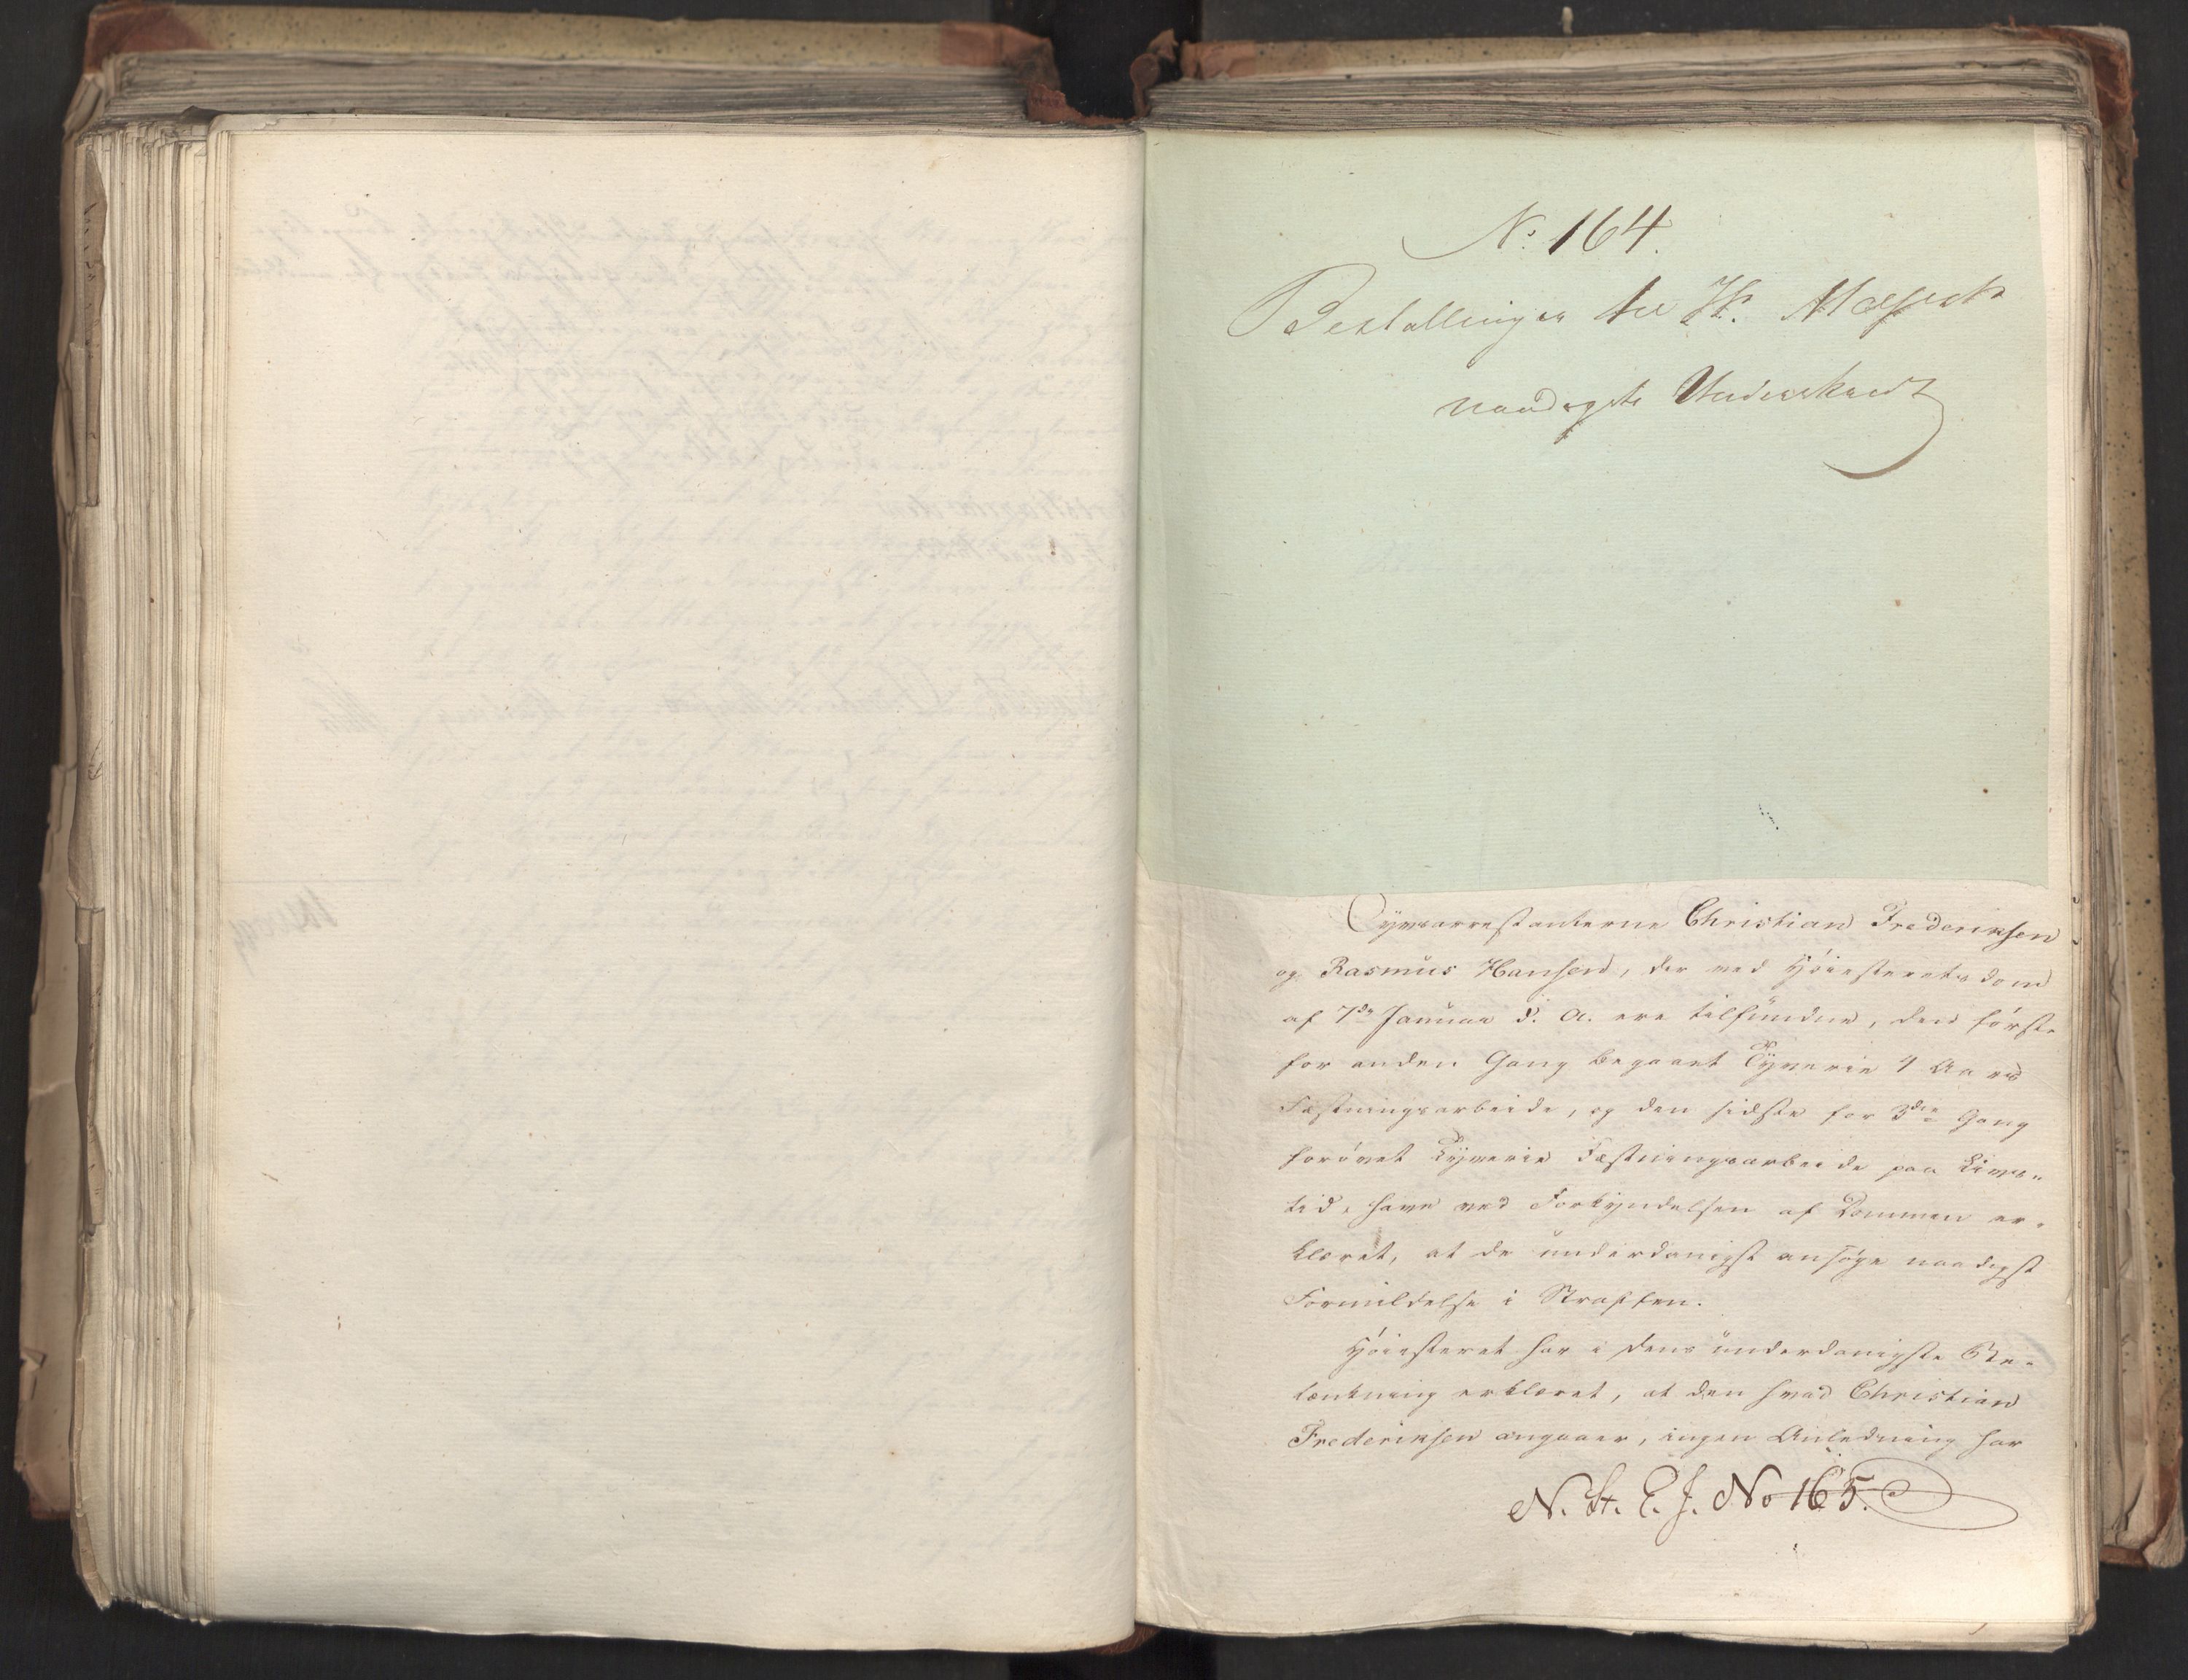 No: 164.
Bestallingen til H. Majests
naadigste Underskrivt
Tyvsarrestanterne Christian Frederiksen
og Rasmus Hansen, der ved Høiesteretsdom
af 7de Januar d. A. ere tilfundne, den første
for anden Gang begaaet Tyverie 4 Aars
Fæstningsarbeide, og den sidste for 3die Gang
forøvet Tyverie Fæstningsarbeide paa Livs-
tid, have ved Forkyndelsen af Dommen er-
klæret, at de underdanigst ansøge naadigst
Formildelse i Straffen.
Høiesteret har i dens underdanigste Be-
tænkning erklæret, at den hvad Christian
Frederiksen angaaer, ingen Anledning har
N. St. E. J. No 165.